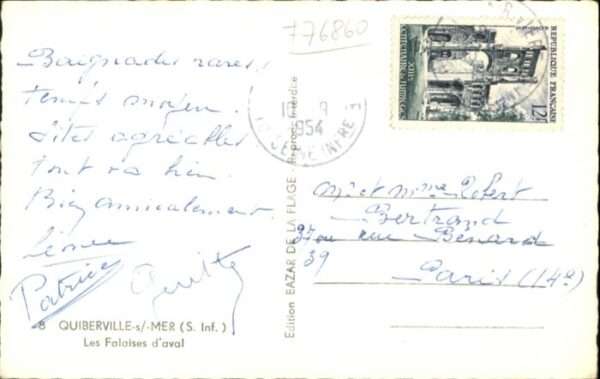 776860
Baignades rares!
Temps moyen!
Sites agréables
Tout va bien.
Bien amicalement
Patrice
8 QUIBERVILLE-s/-MER (S. Inf.)
Les Falaises d'aval
Edition BAZAR DE LA PLAGE - Reprod. Interdite
9
1954
SEINE INFRE
REPUBLIQUE FRANÇAISE
12F
mr et mme Robert
Bertrand
37 ou rue Bénard
39
Paris (14e)